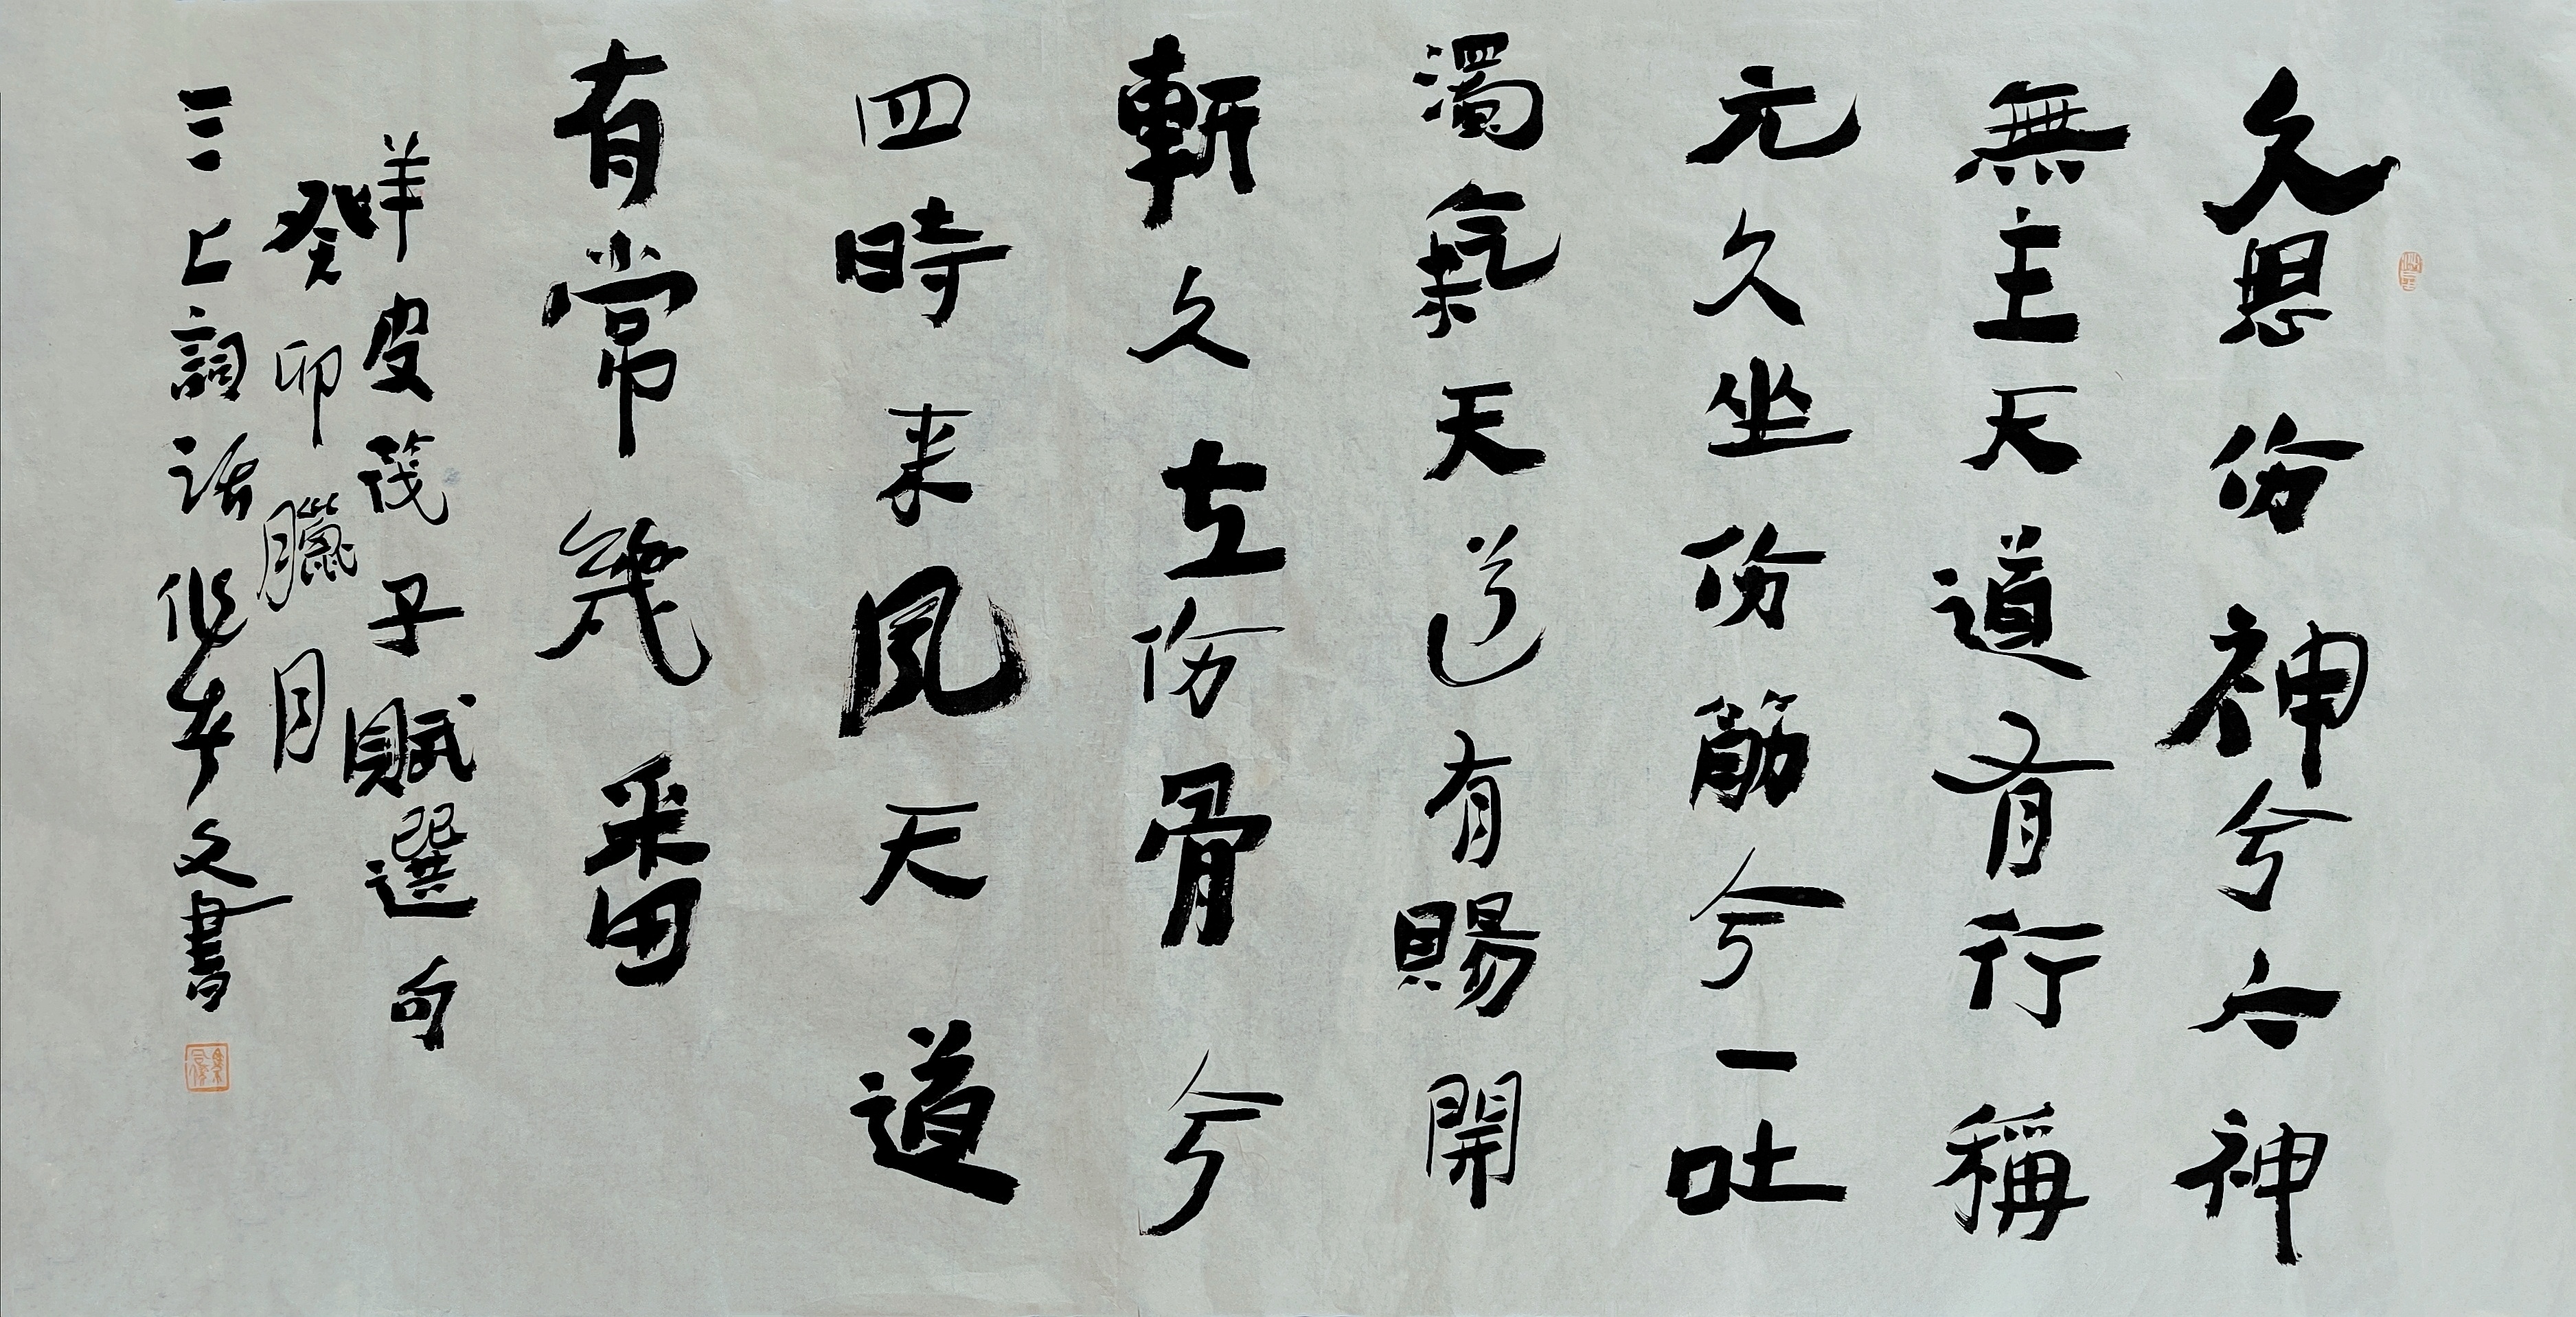 久思伤神兮六神
無主天道有行稱
元久坐伤筋兮一吐
濁氣天道有賜開
軒久立伤骨兮
四時来風天道
有常幾番
羊皮筏子賦選句
癸卯臘月
三上詞話 文書